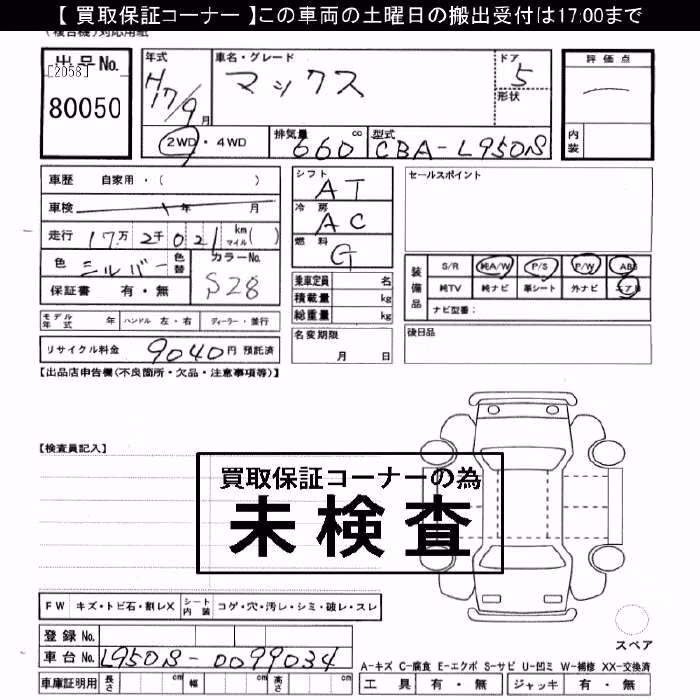 【 買取保証コーナー 】この車両の土曜日の搬出受付は17:00まで
(複合機)対応用紙
出品No.
[2058]
80050
年式
H17/9月
車名・グレード
マックス
ドア
5
形状
評価点
内装
2WD・4WD
排気量
660 cc
型式
CBA-L950S
車歴 自家用・( )
車検 年 月
走行 17万2千021 km マイル( )
色 シルバー
色替
カラーNo.
S28
保証書 有・無
シフト
AT
冷房
AC
燃料
G
乗車定員 名
積載量 kg
総重量 kg
セールスポイント
装備品
S/R 純A/W P/S P/W ABS
純TV 純ナビ 革シート 外ナビ エアB
ナビ型番:
モデル年式 年 ハンドル 左・右 ディーラー・並行
リサイクル料金 9040円 預託済
名変期限
月 日
後日品
【出品店申告欄(不良箇所・欠品・注意事項等)】
【検査員記入】
買取保証コーナーの為
未検査
FW キズ・トビ石・割レX シート内装 コゲ・穴・汚レ・シミ・破レ・スレ
登録No.
車台No. L950S-0099034
車庫証明用 長さ cm 幅 cm 高さ cm
スペア
A-キズ C-腐食 E-エクボ S-サビ U-凹ミ W-補修 XX-交換済
工具 有・無 ジャッキ 有・無